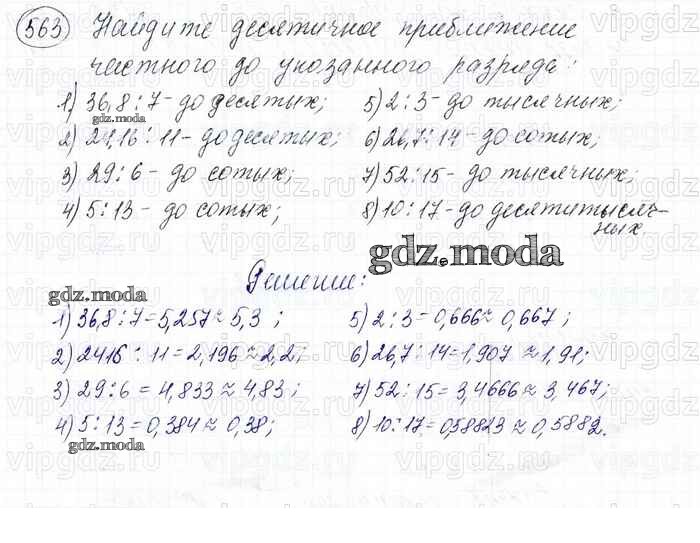 563 Найдите десятичное приближение
частного до указанного разряда:
1) 36,8 : 7 - до десятых; 5) 2 : 3 - до тысячных;
gdz.moda
2) 24,16 : 11 - до десятых; 6) 26,7 : 14 - до сотых;
3) 29 : 6 - до сотых; 7) 52 : 15 - до тысячных;
4) 5 : 13 - до сотых; 8) 10 : 17 - до десятитысяч-
ных
gdz.moda
Решение:
gdz.moda
1) 36,8 : 7 = 5,257 ≈ 5,3 ; 5) 2 : 3 = 0,666 ≈ 0,667 ;
2) 2416 : 11 = 2,196 ≈ 2,2; 6) 26,7 : 14 = 1,907 ≈ 1,91;
3) 29 : 6 = 4,833 ≈ 4,83 ; 7) 52 : 15 = 3,4666 ≈ 3,467;
4) 5 : 13 = 0,384 ≈ 0,38; 8) 10 : 17 = 0,58823 ≈ 0,5882.
gdz.moda